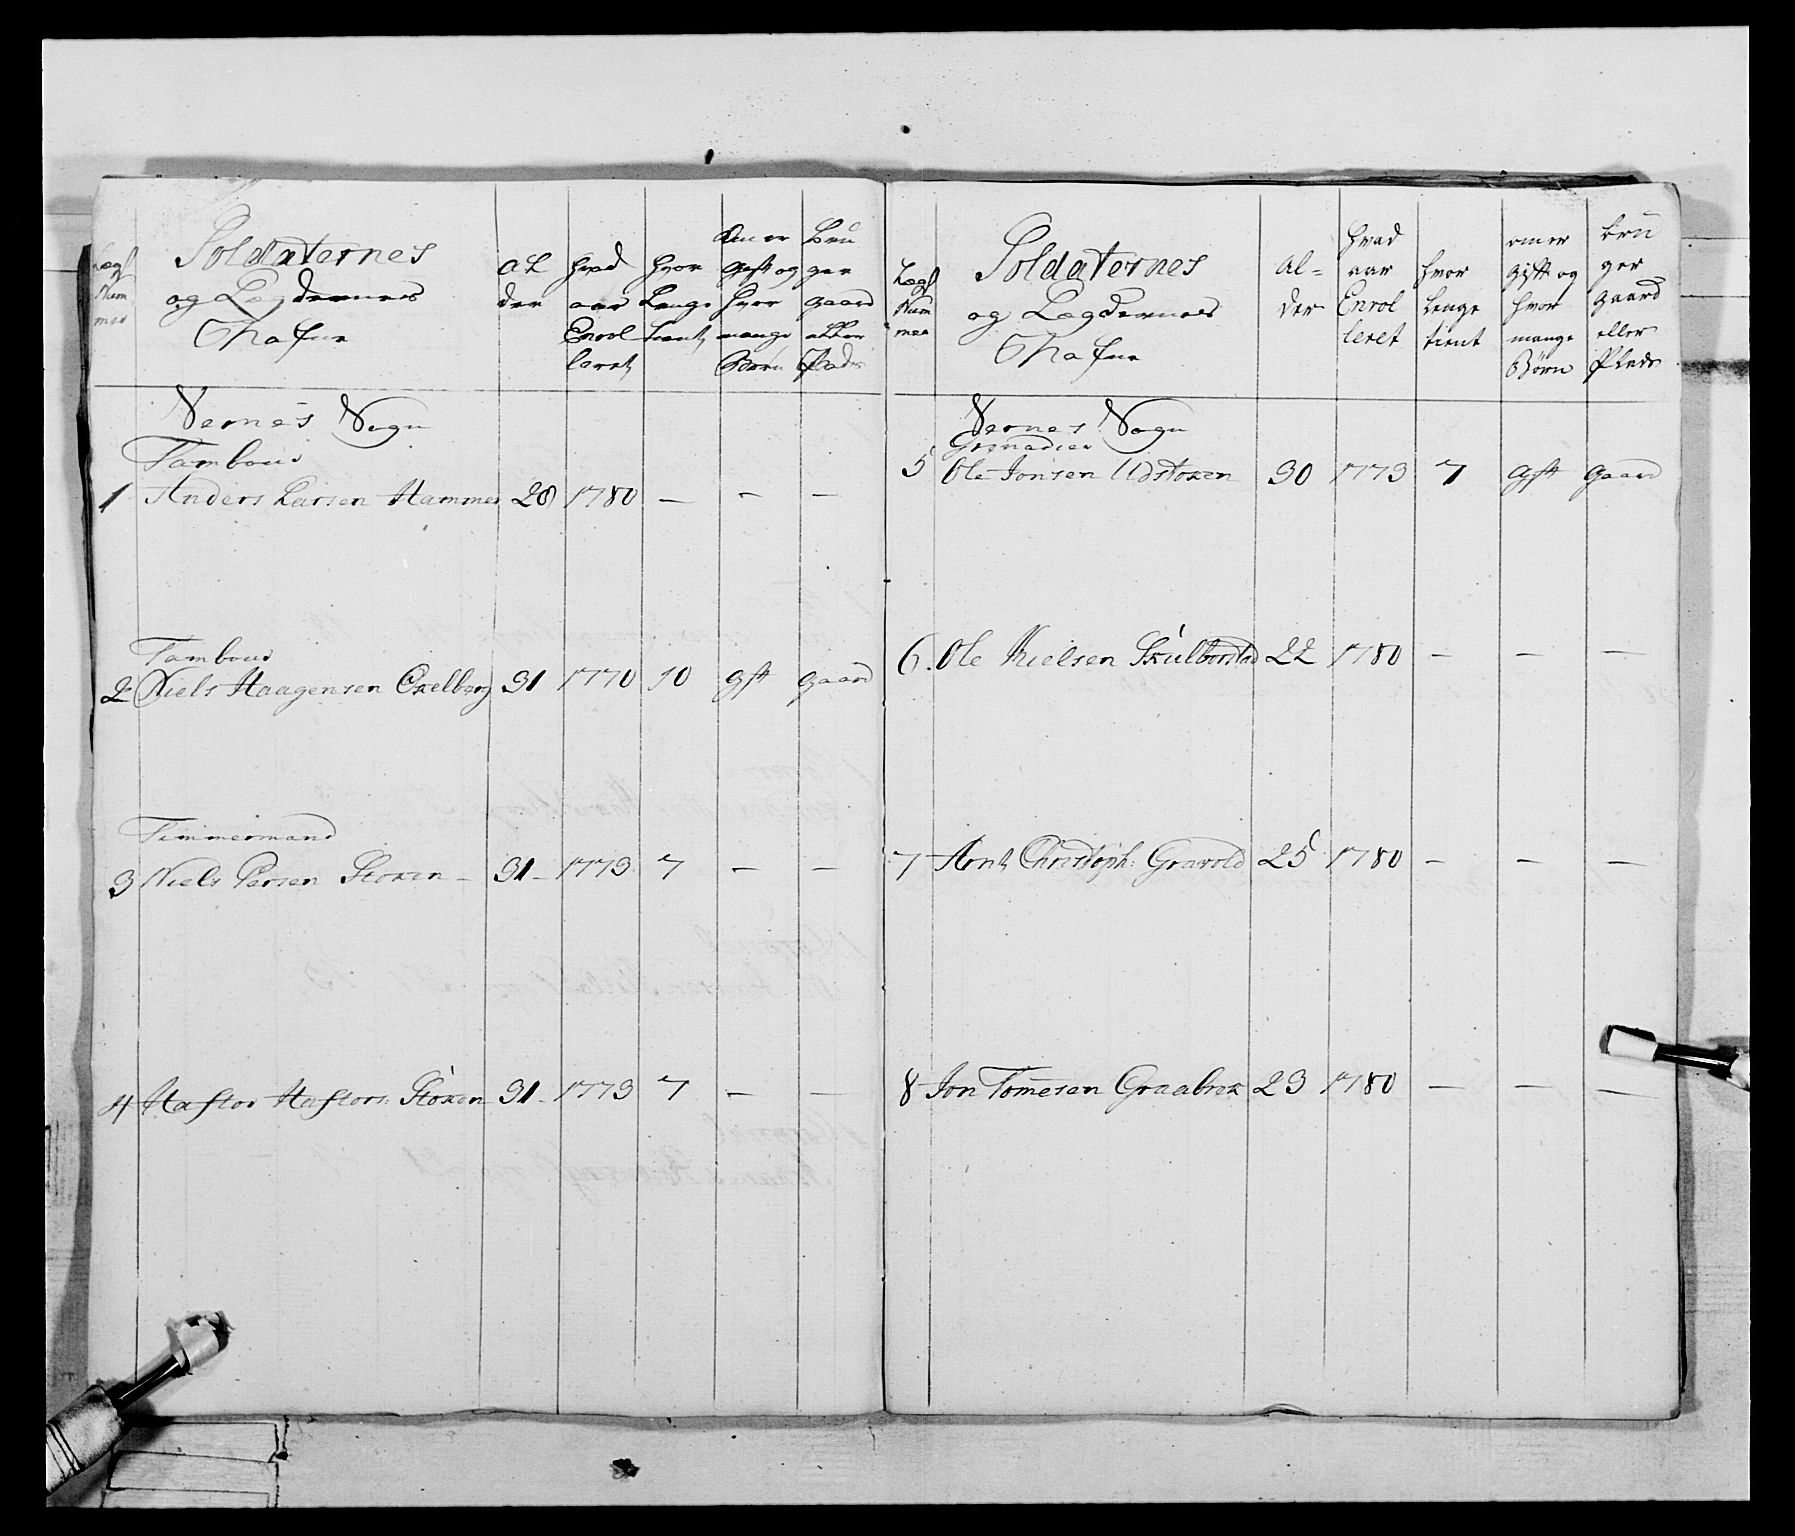 Lægs Num mer
Soldaternes og Lægdernes Nafne
Al der
hvad aar Enrol leret
hvor Lenge tient
om er gift og hvor mange Børn
bru ger gaard eller Plads
Vernes Sogn
Tambour
1 Anders Larsen Hammer 28 1780 — — —
Tambour
2 Niels Haagensen Oxelberg 31 1770 10 gift gaard
Timmermand
3 Niels Persen Stoxen – 31 – 1773 7 — —
4 Haftor Haftors: Stoxen 31 – 1773 7 — —
Lægs Num mer
Soldaternes og Lægdernes Nafne
Al= der
hvad aar Enrol leret
hvor lenge tient
om er gift og hvor mange Børn
brü ger gaard eller Plads
Vernes Sogn
Grenadier
5 Ole Jonsen Udstoxen 30 1773 7 gift gaard
6. Ole Nielsen Skulbørstad 22 1780 — — —
7 Arnt Christoph: Gravold 25 1780 — — —
8 Jon Tomesen Graabrek 23 1780 — — —